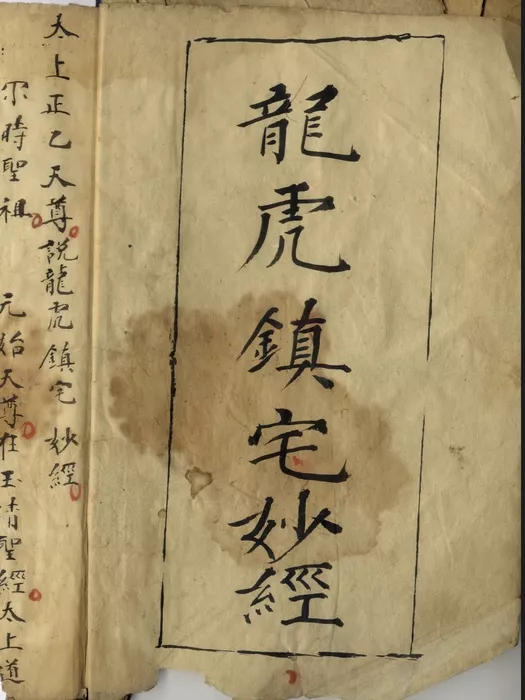 龍虎鎮宅妙經
太上正乙天尊說龍虎鎮宅妙經
尒時聖祖 元始天尊在玉清聖經太上道